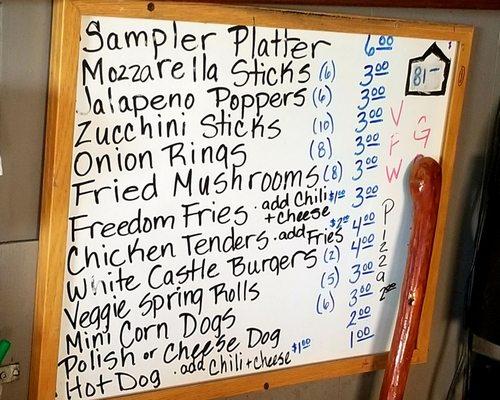 Sampler Platter 6.00
Mozzarella Sticks (6) 3.00
Jalapeno Poppers (6) 3.00
Zucchini Sticks (10) 3.00
Onion Rings (8) 3.00
Fried Mushrooms (8) 3.00
Freedom Fries · add Chili + cheese $1.00 3.00
Chicken Tenders · add Fries $2.00 4.00
White Castle Burgers (2) 4.00
Veggie Spring Rolls (5) 3.00
Mini Corn Dogs (6) 3.00
Polish or Cheese Dog 2.00
Hot Dog · add Chili + Cheese $1.00 1.00
81-
V
F
W
G
P
i
z
z
a
2.00